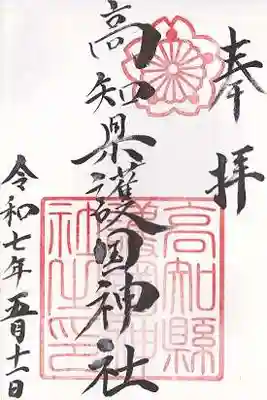 奉拝
高知県護国神社
令和七年五月十一日
高知縣
護國神
社之印